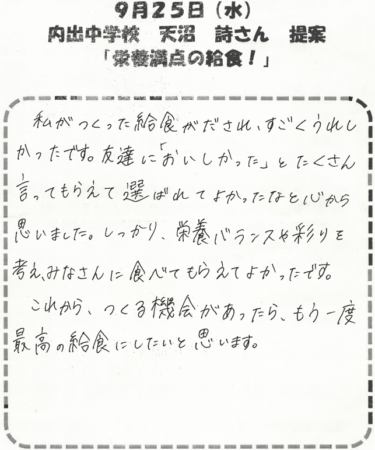 9月25日（水）
内出中学校　天沼　詩さん　提案
「栄養満点の給食！」
私がつくった給食がだされ、すごくうれし
かったです。友達に「おいしかった」とたくさん
言ってもらえて選ばれてよかったなと心から
思いました。しっかり、栄養バランスや彩りを
考え、みなさんに食べてもらえてよかったです。
これから、つくる機会があったら、もう一度
最高の給食にしたいと思います。